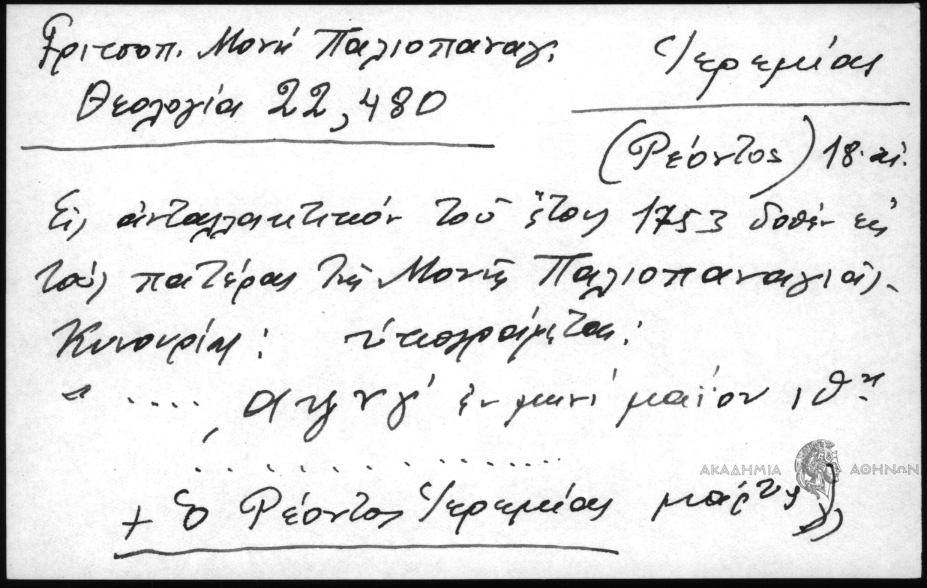 Γριτσοπ. Μονή Παλιοπαναγ.
Θεολογία 22, 480
Ἱερεμίας
(Ρέοντος) 18. αἰ.
Εἰς ἀνταλλακτικόν τοῦ ἔτους 1753 δοθέν εἰς
τούς πατέρας τῆς Μονῆς Παλιοπαναγιᾶς
Κυνουρίας: ὑπογράφεται:
" .... ͵αψνγʹ ἐν μηνί μαΐου ιθῃ
................
+ ὁ Ρέοντος Ἱερεμίας μάρτυς"
ΑΚΑΔΗΜΙΑ ΑΘΗΝΩΝ